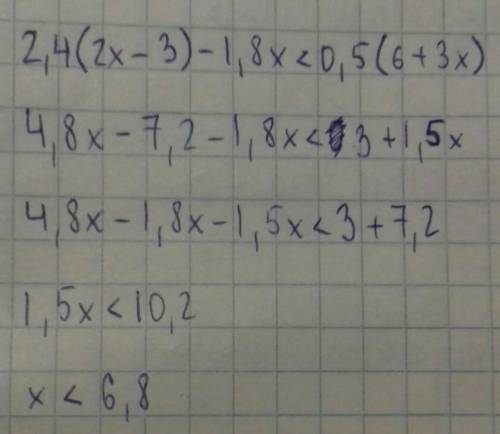 2,4(2x-3)-1,8x<0,5(6+3x)
4,8x-7,2-1,8x<3+1,5x
4,8x-1,8x-1,5x<3+7,2
1,5x<10,2
x<6,8